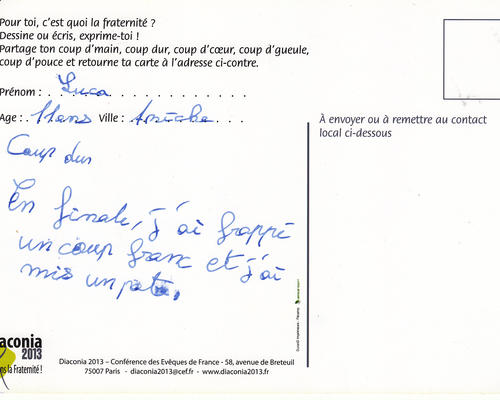 Pour toi, c'est quoi la fraternité ?
Dessine ou écris, exprime-toi !
Partage ton coup d'main, coup dur, coup d'cœur, coup d'gueule,
coup d'pouce et retourne ta carte à l'adresse ci-contre.
Prénom : Luca
Age : 11ans Ville :
À envoyer ou à remettre au contact
local ci-dessous
Coup dur
En finale, j'ai frappé
un coup franc et j'ai
mis un
aconia
2013
ns la Fraternité !
Diaconia 2013 – Conférence des Evêques de France - 58, avenue de Breteuil
75007 Paris - diaconia2013@cef.fr - www.diaconia2013.fr